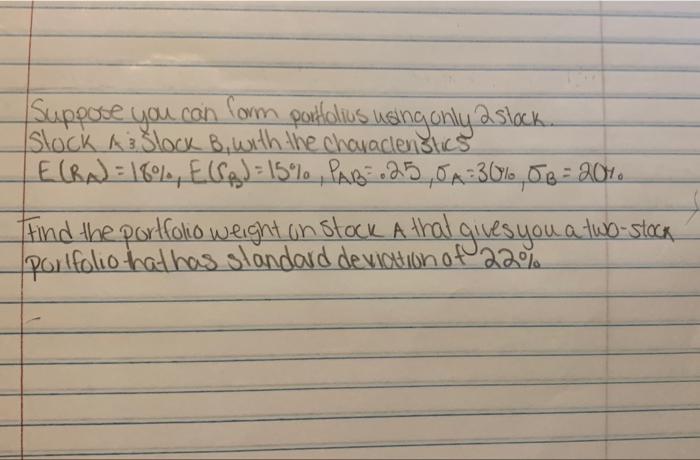 Suppose you can form portfolius using only 2 stock.
Stock A & Stock B, with the characteristics
E(RA) = 18%, E(rB) = 15%, PAB = .25, σA = 30%, σB = 20%.
Find the portfolio weight on Stock A that gives you a two-stock
portfolio that has standard deviation of 22%